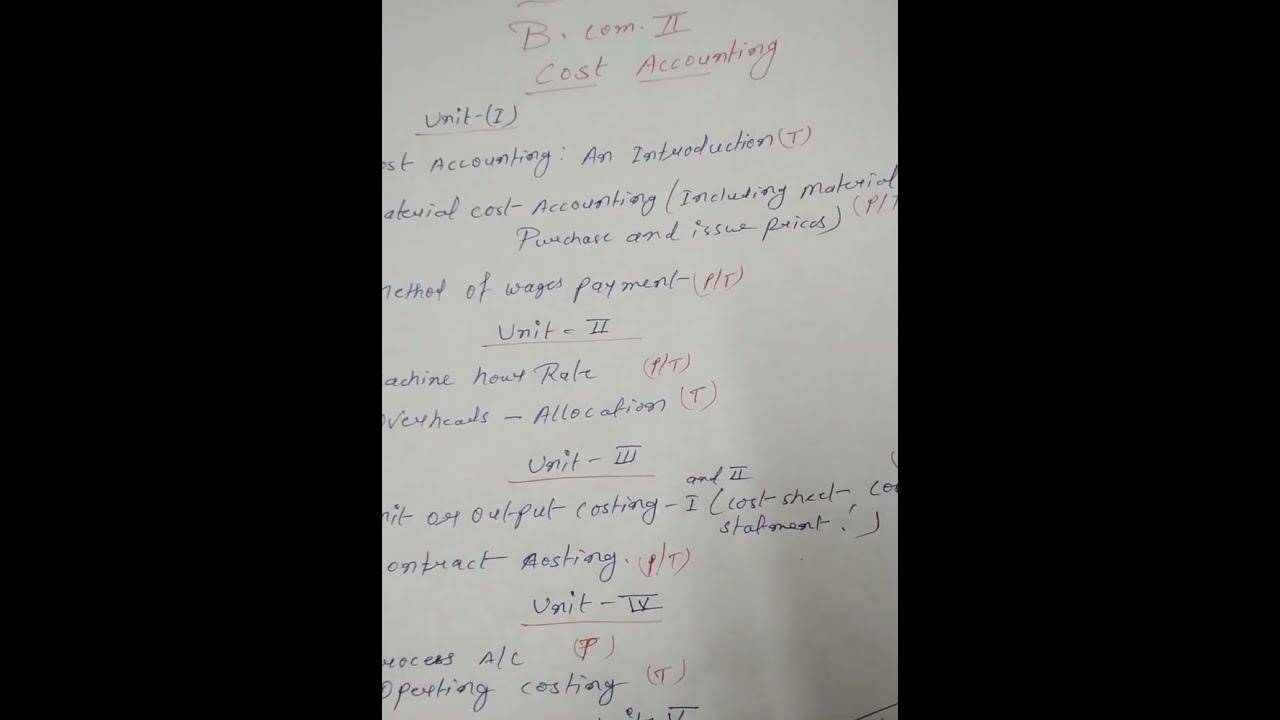 B. com. II
Cost Accounting
Unit-(I)
ost Accounting: An Introduction (T)
aterial cost- Accounting (Including material
Purchase and issue prices) (P/T
ethod of wages payment-(P/T)
Unit = II
achine hour Rate (P/T)
verheads - Allocation (T)
Unit - III
and II
nit or output costing - I (cost-sheet, co
statment.)
ontract costing. (P/T)
Unit - IV
rocess A/C (P)
Operting costing (T)
V